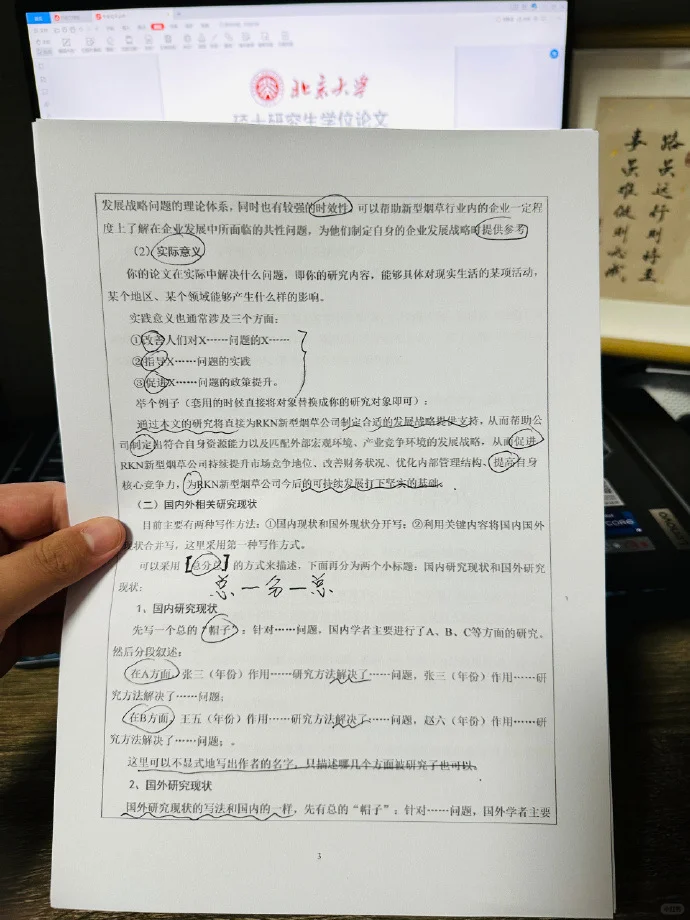 北京大学
硕士研究生学位论文
发展战略问题的理论体系，同时也有较强的时效性，可以帮助新型烟草行业内的企业一定程
度上了解在企业发展中所面临的共性问题，为他们制定自身的企业发展战略时提供参考。
（2）实际意义
你的论文在实际中解决什么问题，即你的研究内容，能够具体对现实生活的某项活动，
某个地区、某个领域能够产生什么样的影响。
实践意义也通常涉及三个方面：
①改善人们对X……问题的X……
②指导X……问题的实践
③促进X……问题的政策提升。
举个例子（套用的时候直接将对象替换成你的研究对象即可）：
通过本文的研究将直接为RKN新型烟草公司制定合适的发展战略提供支持，从而帮助公
司制定出符合自身资源能力以及匹配外部宏观环境、产业竞争环境的发展战略，从而促进
RKN新型烟草公司持续提升市场竞争地位、改善财务状况、优化内部管理结构、提高自身
核心竞争力，为RKN新型烟草公司今后的可持续发展打下坚实的基础。
（二）国内外相关研究现状
目前主要有两种写作方法：①国内现状和国外现状分开写；②利用关键内容将国内国外
现状合并写，这里采用第一种写作方式。
可以采用【总分总】的方式来描述，下面再分为两个小标题：国内研究现状和国外研究
现状：
总一分一总
1、国内研究现状
先写一个总的“帽子”：针对……问题，国内学者主要进行了A、B、C等方面的研究。
然后分段叙述：
在A方面，张三（年份）作用……研究方法解决了……问题，张三（年份）作用……研
究方法解决了……问题；
在B方面，王五（年份）作用……研究方法解决了……问题，赵六（年份）作用……研
究方法解决了……问题；。
这里可以不显式地写出作者的名字，只描述哪几个方面被研究了也可以。
2、国外研究现状
国外研究现状的写法和国内的一样，先有总的“帽子”：针对……问题，国外学者主要
3
路虽远行则将至
事虽难做则必成